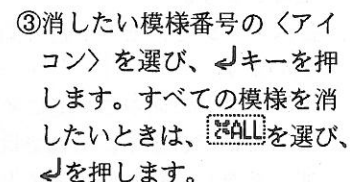 ③消したい模様番号の〈アイ
コン〉を選び、↲キーを押
します。すべての模様を消
したいときは、ALLを選び、
↲を押します。